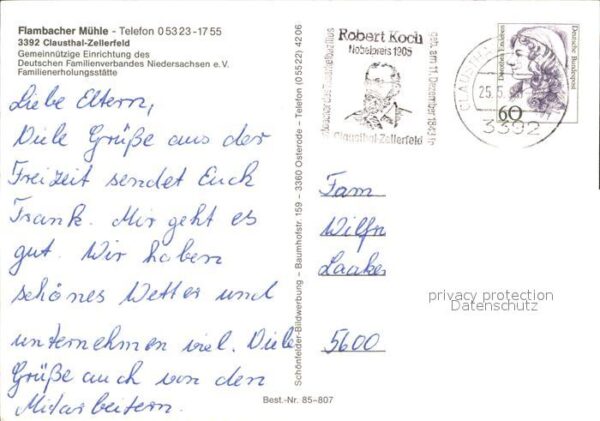 Flambacher Mühle - Telefon 0 53 23 - 17 55
3392 Clausthal-Zellerfeld
Gemeinnützige Einrichtung des
Deutschen Familienverbandes Niedersachsen e.V.
Familienerholungsstätte
Liebe Eltern,
Viele Grüße aus der
Freizeit sendet Euch
Frank. Mir geht es
gut. Wir haben
schönes Wetter und
unternehmen viel. Viele
Grüße auch von den
Mitarbeitern.
Schönfelder-Bildwerbung – Baumhofstr. 159 – 3360 Osterode – Telefon (0 55 22) 42 06
Best.-Nr. 85-807
Robert Koch
Nobelpreis 1905
geb. am 11. Dezember 1843 in
Clausthal-Zellerfeld
CLAUSTHAL
25.5.
3392
Dorothea Erxleben
Deutsche Bundespost
60
Fam
Wilfr
Laaker
5600
privacy protection
Datenschutz